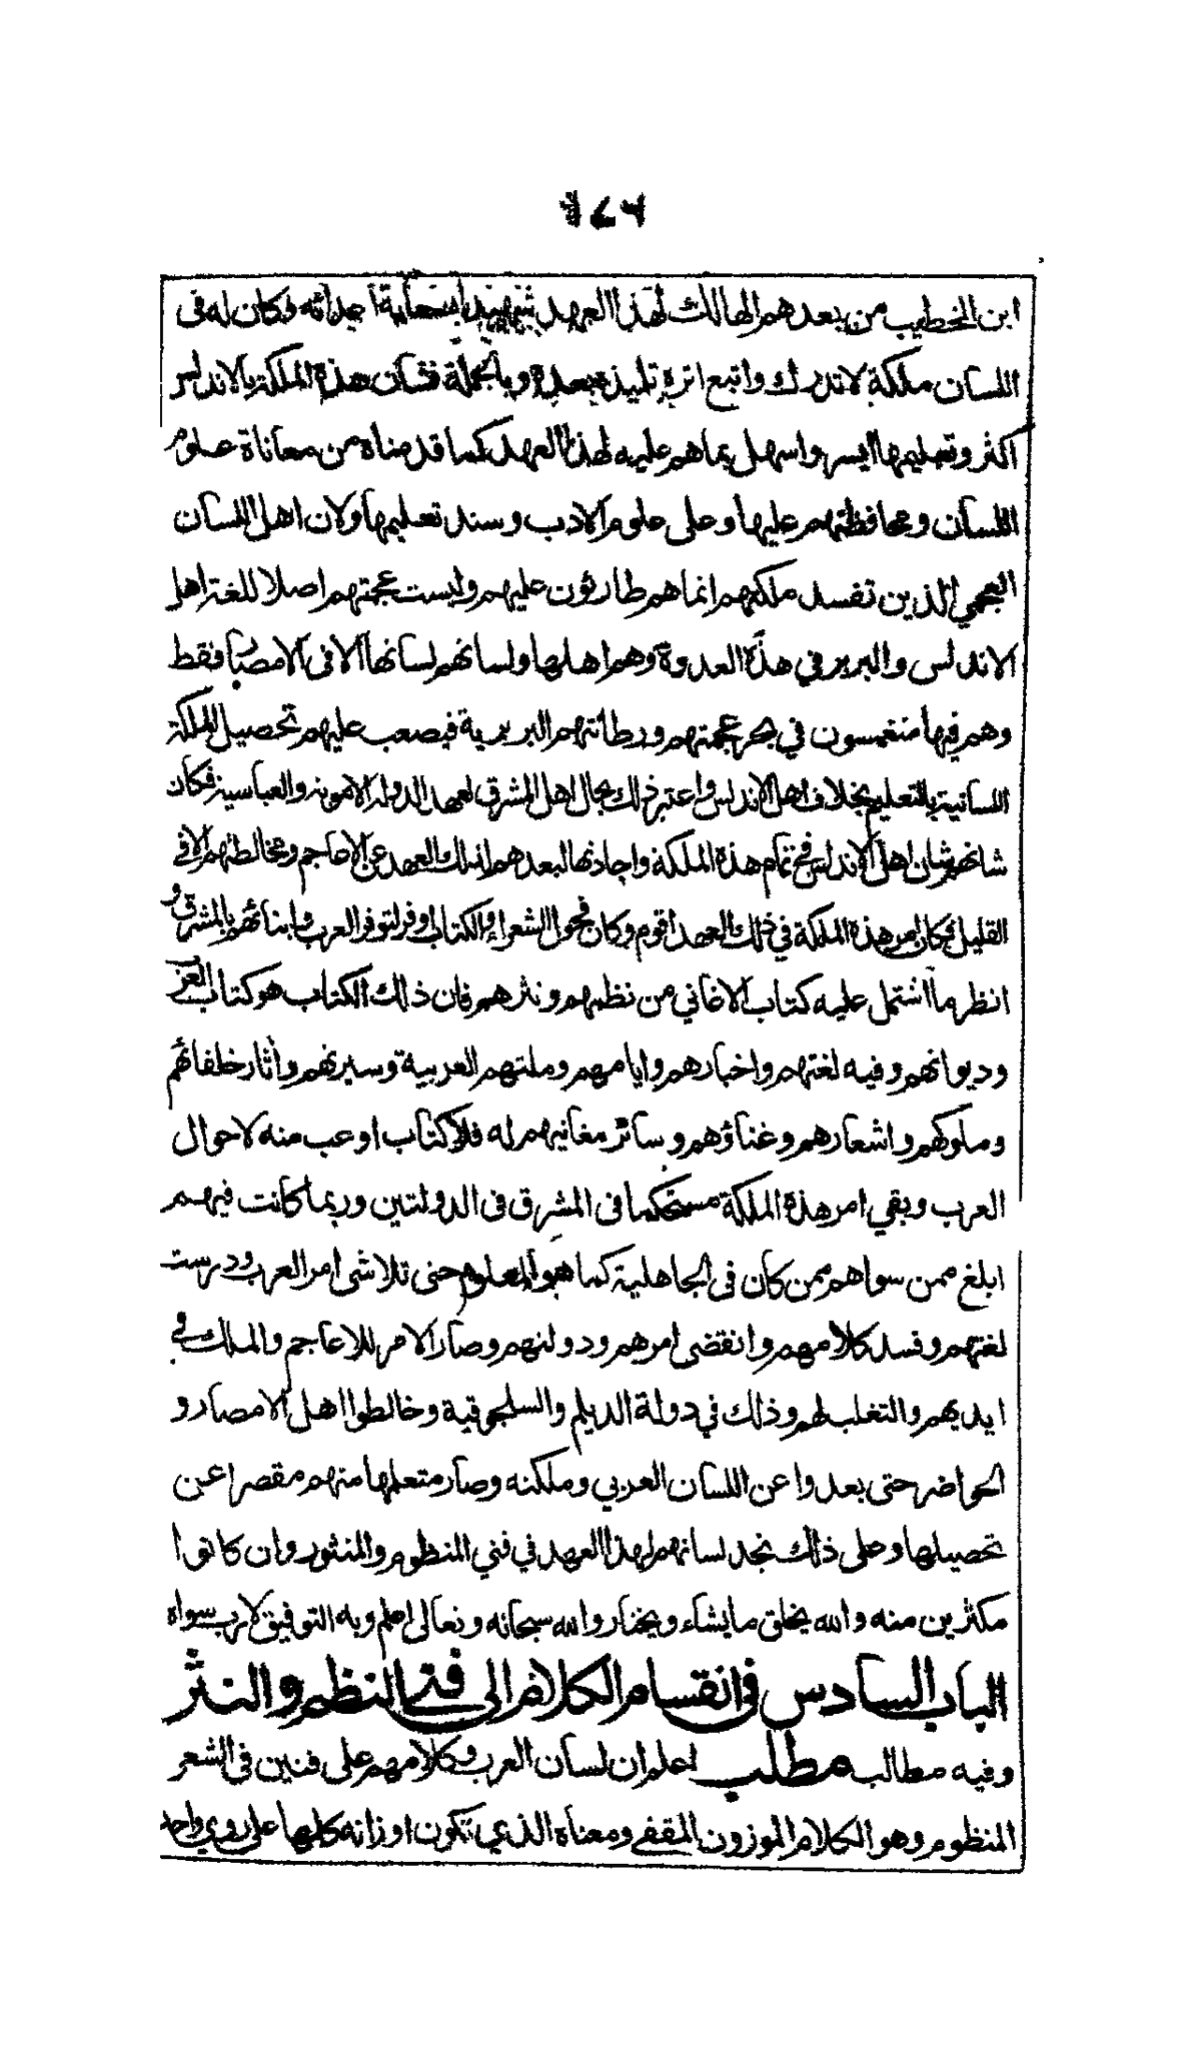 ابن الخطيب من بعدهم الهالك لهذا العهد شهيدا بسعاية اعدائه وكان له فى
اللسان ملكة لا تدرك واتبع اثره تلميذه بعده وبالجملة فشان هذه الملكة بالاندلس
اكثر وتعليمها ايسر واسهل بما هم عليه لهذا العهد كما قدمناه من معاناة علوم
اللسان ومحافظتهم عليها وعلى علوم الادب وسند تعليمها ولان اهل اللسان
العجمي الذين تفسد ملكتهم انما هم طارئون عليهم وليست عجمتهم اصلا للغة اهل
الاندلس والبربر في هذه العدوة وهم اهلها ولسانهم لسانها الا فى الامصار فقط
وهم فيها منغمسون في بحر عجمتهم ورطانتهم البربرية فيصعب عليهم تحصيل الملكة
اللسانية بالتعليم بخلاف اهل الاندلس واعتبر ذلك بحال اهل المشرق لعهد الدولة الاموية والعباسية فكان
شانهم شان اهل الاندلس في تمام هذه الملكة واجادتها لبعدهم لذلك العهد عن الاعاجم ومخالطتهم الا في
القليل فكان امر هذه الملكة في ذلك العهد اقوم وكان فحول الشعراء والكتاب اوفر لتوفر العرب وابنائهم بالمشرق و
انظر ما اشتمل عليه كتاب الاغاني من نظمهم ونثرهم فان ذلك الكتاب هو كتاب العرب
وديوانهم وفيه لغتهم واخبارهم وايامهم وملتهم العربية وسيرتهم وآثار خلفائهم
وملوكهم واشعارهم وغناؤهم وسائر مغانيهم له فلا كتاب اوعب منه لاحوال
العرب وبقي امر هذه الملكة مستحكما فى المشرق فى الدولتين وربما كانت فيهم
ابلغ ممن سواهم ممن كان فى الجاهلية كما هو المعلوم حتى تلاشى امر العرب ودرست
لغتهم وفسد كلامهم وانقضى امرهم ودولتهم وصار الامر للاعاجم والملك في
ايديهم والتغلب لهم وذلك في دولة الديلم والسلجوقية وخالطوا اهل الامصار و
الحواضر حتى بعدوا عن اللسان العربي وملكته وصار متعلمها منهم مقصرا عن
تحصيلها وعلى ذلك نجد لسانهم لهذا العهد في فني المنظوم والمنثور وان كانوا
مكثرين منه والله يخلق ما يشاء ويختار والله سبحانه وتعالى اعلم وبه التوفيق لا رب سواه
الباب السادس فى انقسام الكلام الى فني النظم والنثر
وفيه مطالب مطلب اعلم ان لسان العرب وكلامهم على فنين فى الشعر
المنظوم وهو الكلام الموزون المقفى ومعناه الذي تكون اوزانه كلها على روي واحد